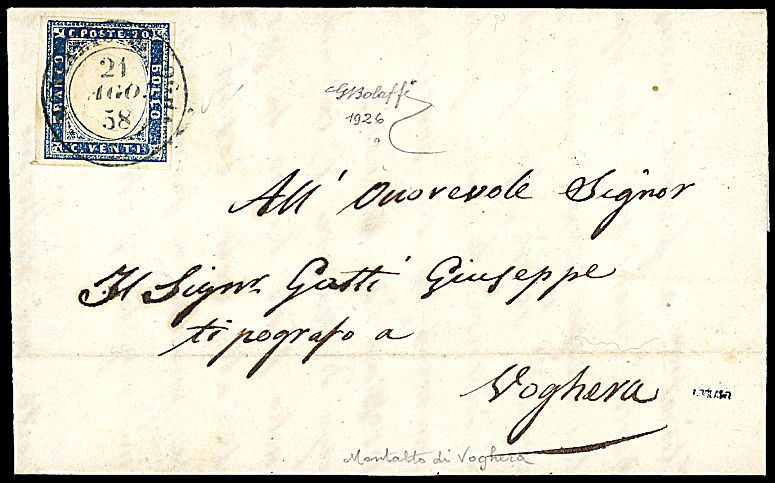 C. POSTE 20
FRANCO
BOLLO
C. VENTI
21
AGO.
58
GBolaffi
1926
All' Onorevole Signor
Il Signr Gatti Giuseppe
tipografo a
Voghera
Montalto di Voghera